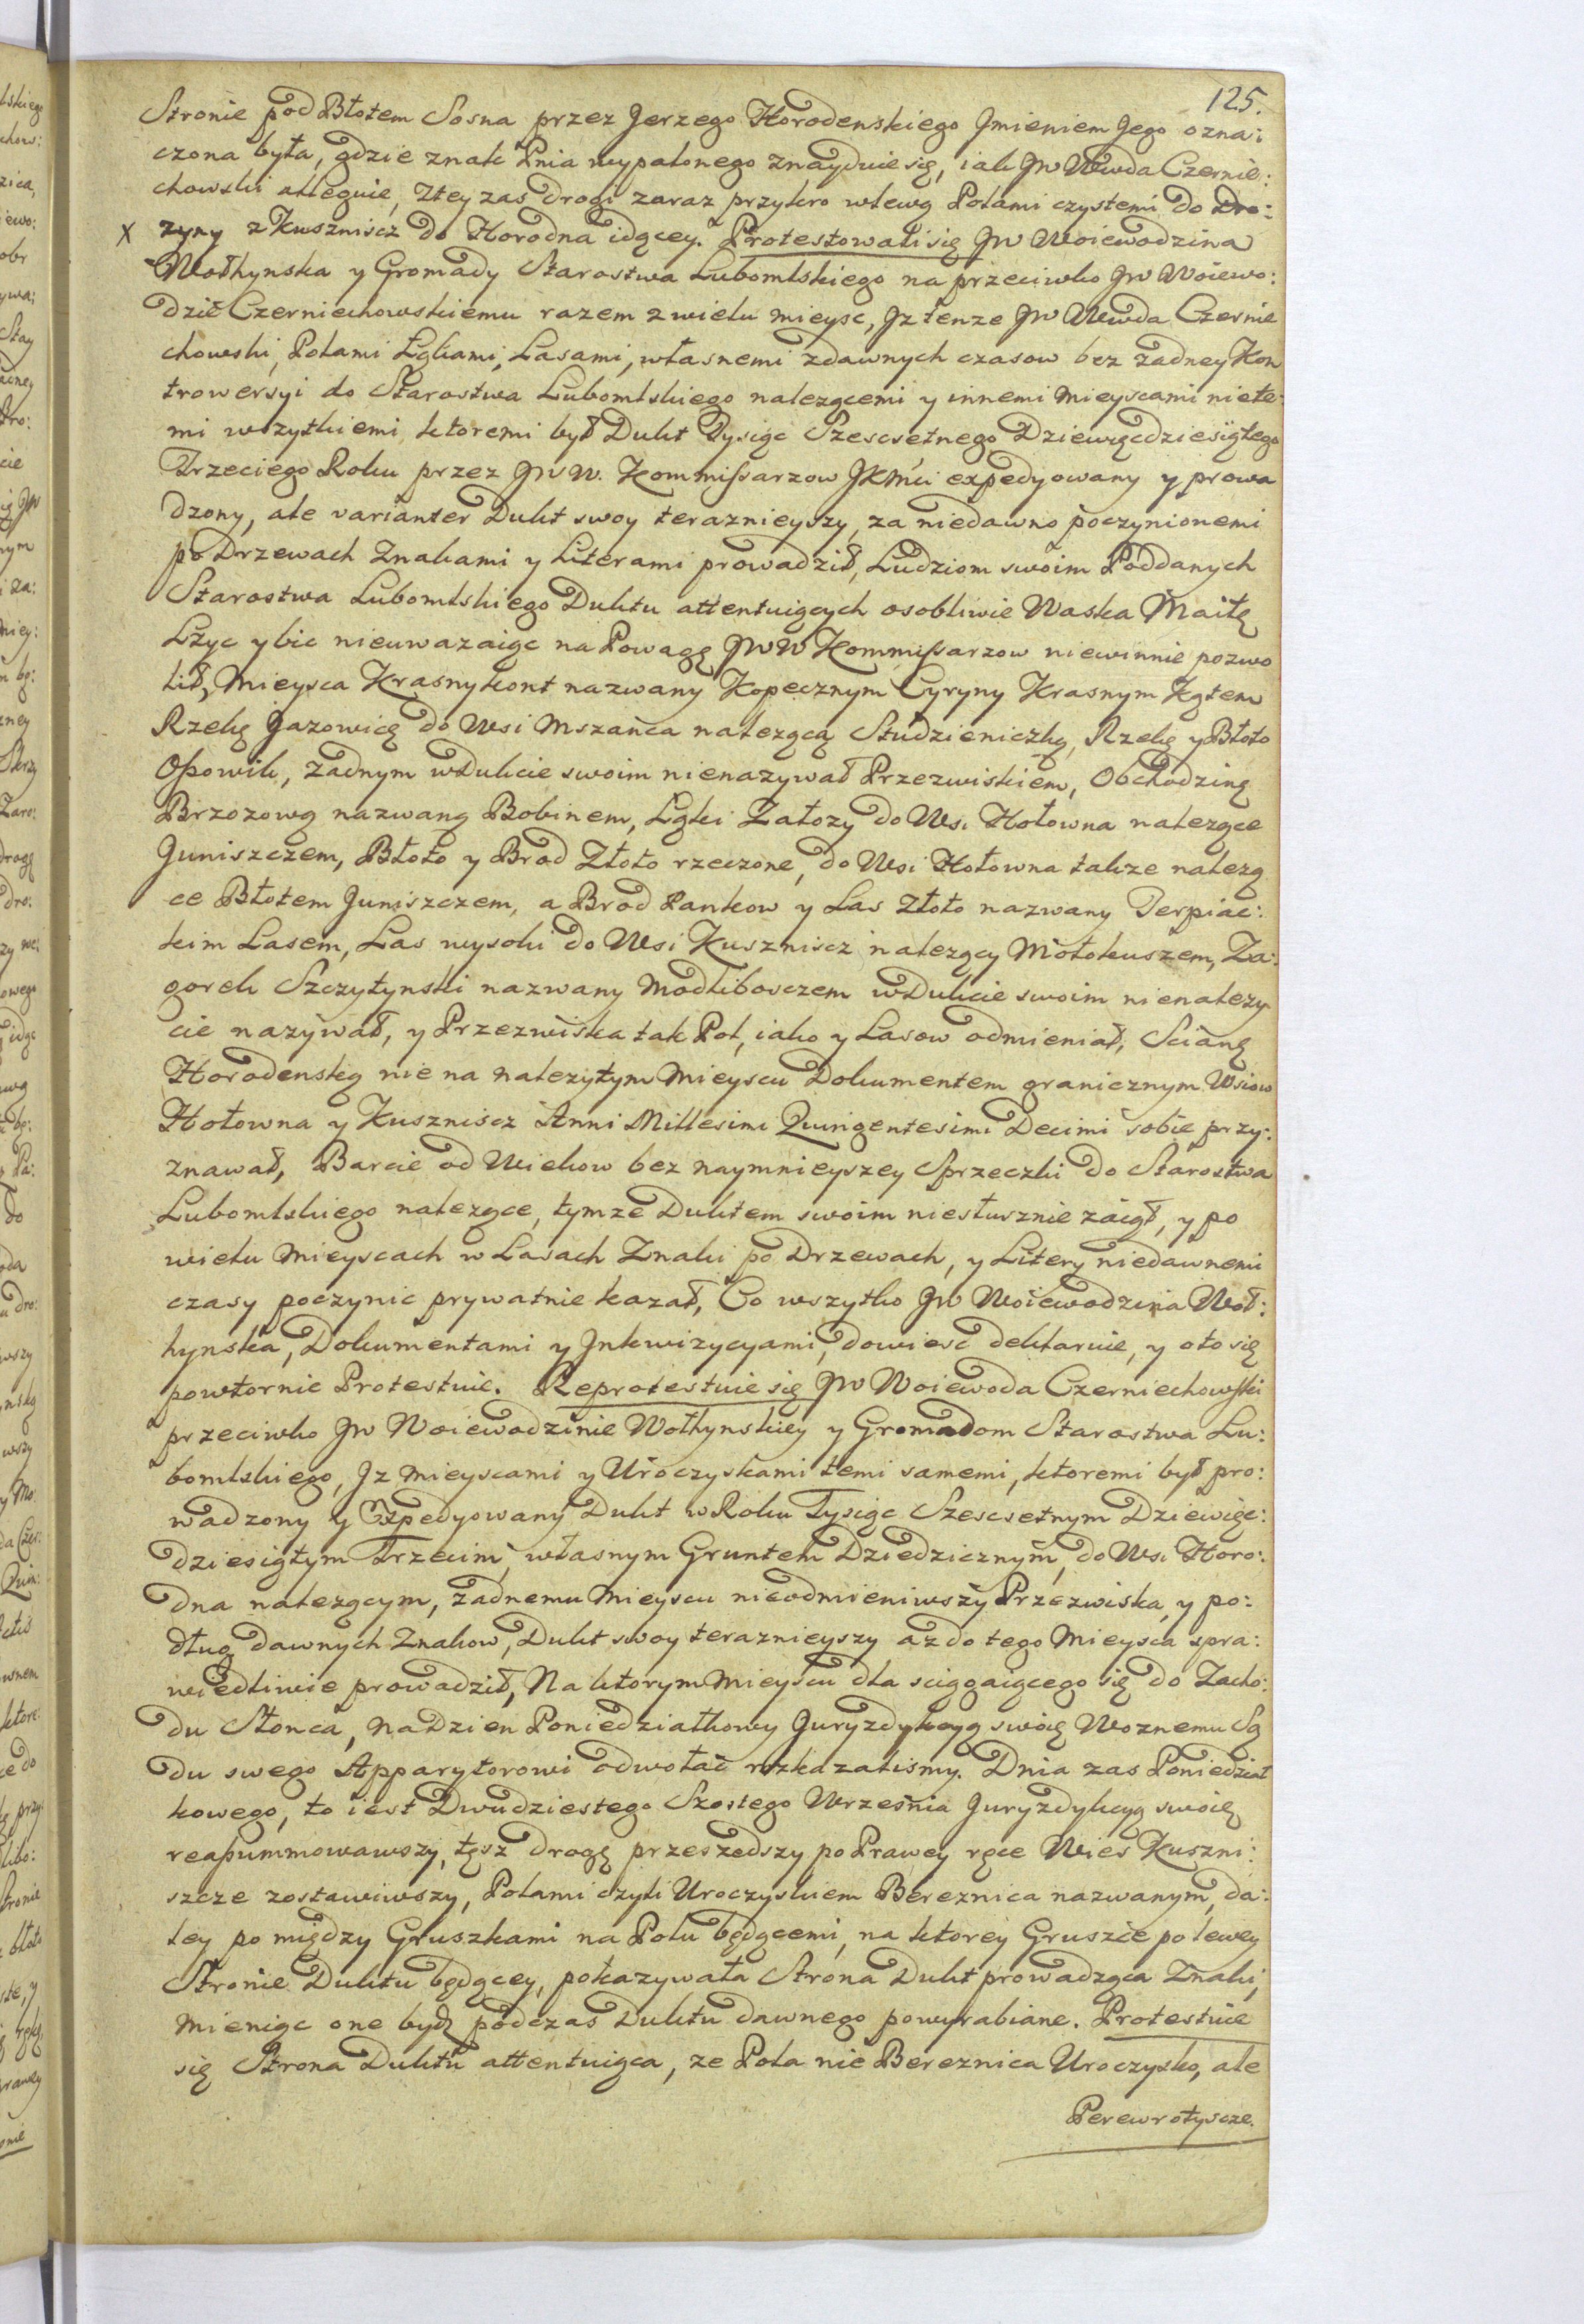 125.
Stronie pod Błotem Sosna przez Jerzego Horodenskiego Jmieniem Jego ozna:
czona była, gdzie znak Pnia wypalonego znayduie się, iak JW Wwda Czernie:
chowski alleguie, Ztey zas drogi zaraz przykro wlewą Polami czystemi do dro:
x zyny z Kuszniscz do Horodna idącey. Protestowali się JW Woiewodzina
Wołhynska y Gromady Starostwa Lubomlskiego na przeciwko JW Woiewo:
dzie Czerniechowskiemu razem z wielu mieysc, Jz tenze JW Wwda Czernie
chowski, Polami Łąkami, Lasami, własnemi zdawnych czasow bez zadney Kon
trowersyi do Starostwa Lubomlskiego nalezącemi y innemi Mieyscami niete:
mi wszytkiemi, ktoremi był Dukt Tysiąc Szescsetnego Dziewięcdziesiątego
Trzeciego Roku przez JWW. Kommissarzow JKMci expedyowany y prowa
dzony, ale varianter Dukt swoy teraznieyszy, za niedawno poczynionemi
po Drzewach Znakami y Literami prowadził, Ludziom swoim Poddanych
Starostwa Lubomlskiego Duktu attentuiących osobliwie Waska Maitę
Lzyc y bic nieuwazaiąc na Powagę JWW Kommissarzow niewinnie pozwo
lił, Mieysca Krasnykont nazwany Kopecznym Cyryny Krasnym Kątem
Rzekę Jazowicę do Wsi Mszanca nalezącą Studzieniczką, Rzekę y Błoto
Ossowik, zadnym w Dukcie swoim nienazywał Przezwiskiem, Obchodzinę
Brzozową nazwaną Bobinem, Łąki Załozy do Wsi Hołowna nalezące
Juniszczem, Błoto y Brod Złoto rzeczone, do Wsi Hołowna takze nalezą
ce Błotem Juniszczem, a Brod Pankow y Las Złoto nazwany Terpiac:
kim Lasem, Las wysoki do Wsi Kuszniscz nalezący Mołokuszem, Za:
gorek Szczytynski nazwany Modliboszczem w Dukcie swoim nienalezy
cie nazywał, y Przezwiska tak Pol, iako y Lasow odmieniał, Scianę
Horodenską nie na nalezytym Mieyscu Dokumentem granicznym Wsiow
Hołowna y Kuszniscz Anni Millesimi Quingentesimi Decimi sobie przy:
znawał, Barcie od Wiekow bez naymnieyszey Sprzeczki do Starostwa
Lubomlskiego nalezące, tymze Duktem swoim niesłusznie zaiął, y po
wielu Mieyscach w Lasach Znaki po Drzewach, y Litery niedawnemi
czasy poczynic prywatnie kazał, Co wszytko JW Woiewodzina Woł:
hynska, Dokumentami y Jnkwizycyami, dowiesc deklaruie, y oto się
powtornie Protestuie. Reprotestuie się JW Woiewoda Czerniechowski
przeciwko JW Woiewodzinie Wołhynskiey y Gromadom Starostwa Lu:
bomlskiego, Jz Mieyscami y Uroczyskami temi samemi, ktoremi był pro:
wadzony y Expedyowany Dukt w Roku Tysiąc Szescsetnym Dziewięc:
dziesiątym Trzecim, własnym Gruntem Dziedzicznym, do Wsi Horo:
dna nalezącym, zadnemu Mieyscu nieodmieniwszy Przezwiska, y po:
dług dawnych Znakow, Dukt swoy teraznieyszy az do tego Mieysca spra:
wiedliwie prowadził, Na ktorym Mieyscu dla sciągaiącego się do Zacho:
du Słonca, na Dzien Poniedziałkowy Juryzdykcyą swoię Woznemu Są
du swego Apparytorowi odwołac rozkazalismy. Dnia zas Poniedział
kowego, to iest Dwudziestego Szostego Września Juryzdykcyą swoię
reassummowawszy, tęsz drogę przeszedszy po Prawey ręce Wies Kuszni:
szcze zostawiwszy, Polami czyli Uroczyskiem Bereznica nazwanym, da:
ley po między Gruszkami na Polu będącemi, na ktorey Gruszce po lewey
Stronie Duktu będącey, pokazywała Strona Dukt prowadząca Znaki,
Mieniąc one bydz podczas Duktu dawnego powyrabiane. Protestuie
się Strona Duktu attentuiąca, ze Pola nie Bereznica Uroczysko, ale
Perewrotyscze.